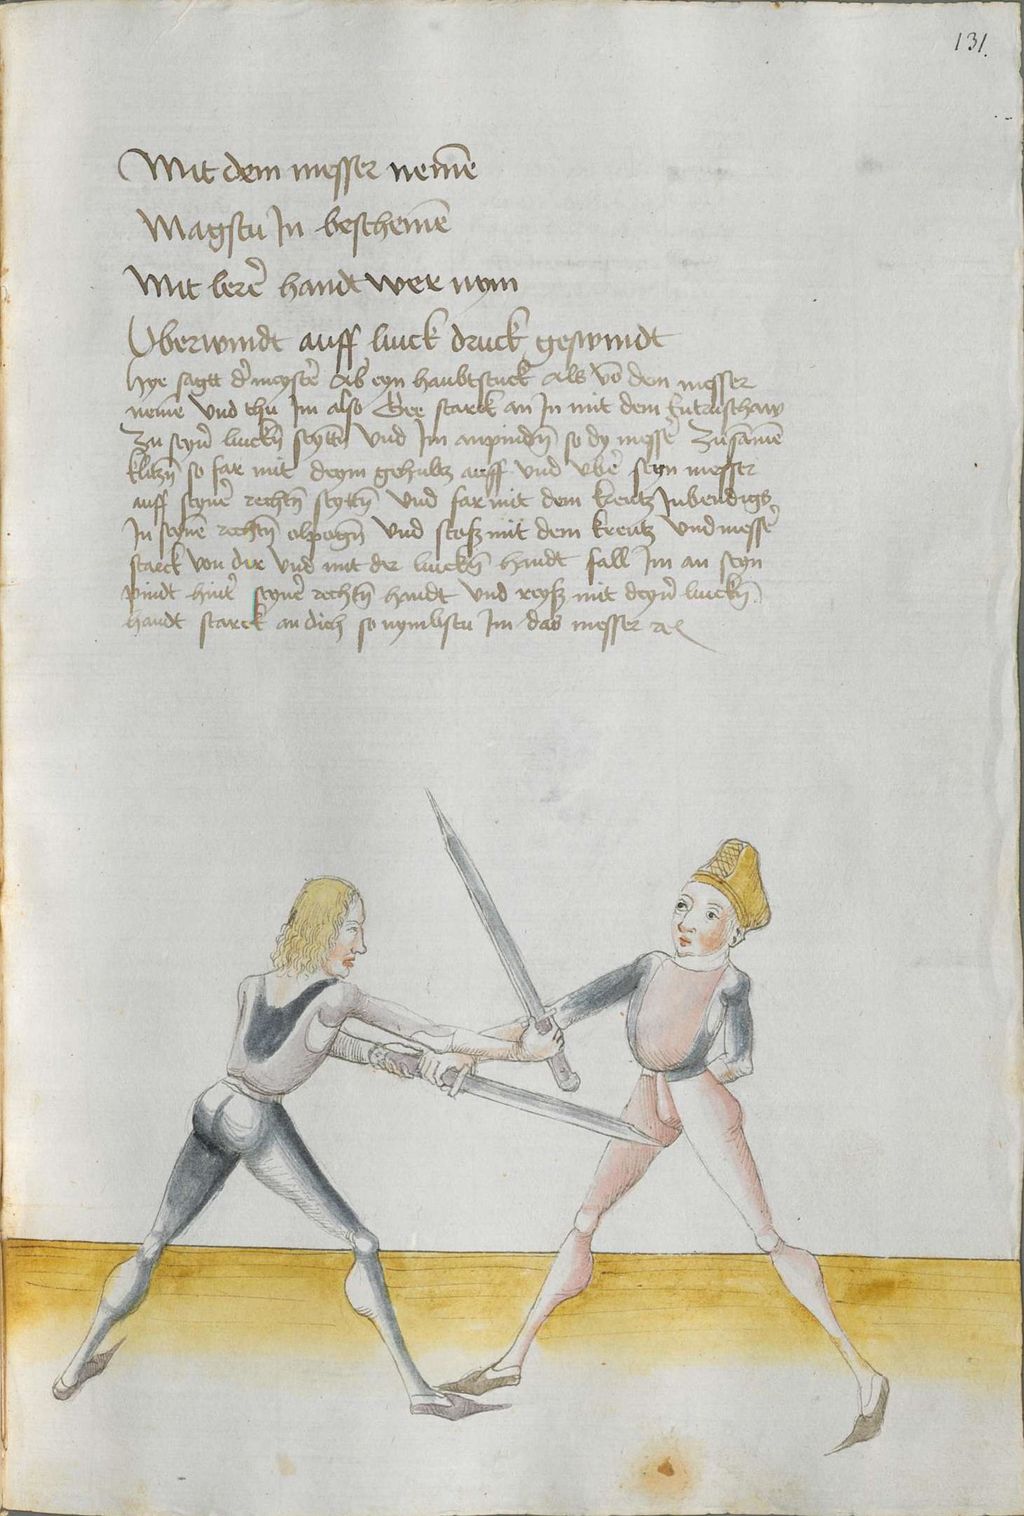 131.
Mit dem messer nem̄e
Magstu Jn beschem̄e
Mit lere᷑ handt wer nym
Vberwindt auff linck druck geswindt
Hye sagtt d᷑ meyste᷑ Ab eyn haubtstuck Als vō dem messer
neme᷑ Vnd thu Jm also Gee starck an Jn mit dem Entrusthaw
Zu seyn᷑ linckn̄ seyttn̄ Vnd Jm anpindn̄ so dy messe᷑ Zusam̄e
klitzn̄ so far mit deym gehultz auff Vnd Vbe᷑ seyn messer
auff seyne᷑ rechtn̄ seyttn̄ Vnd far mit dem kreutz Jnbendigs
Jn seynē rechtn̄ elpogn̄ Vnd stosz mit dem kreutz Vnd messe᷑
starck von dir Vnd mit der linckn̄ handt fall Jm an seyn
pindt hint᷑ seyne᷑ rechtn̄ handt Vnd reysz mit deyn᷑ linckn̄
handt starck an dich so nymbstu Jm das messer ꝛc